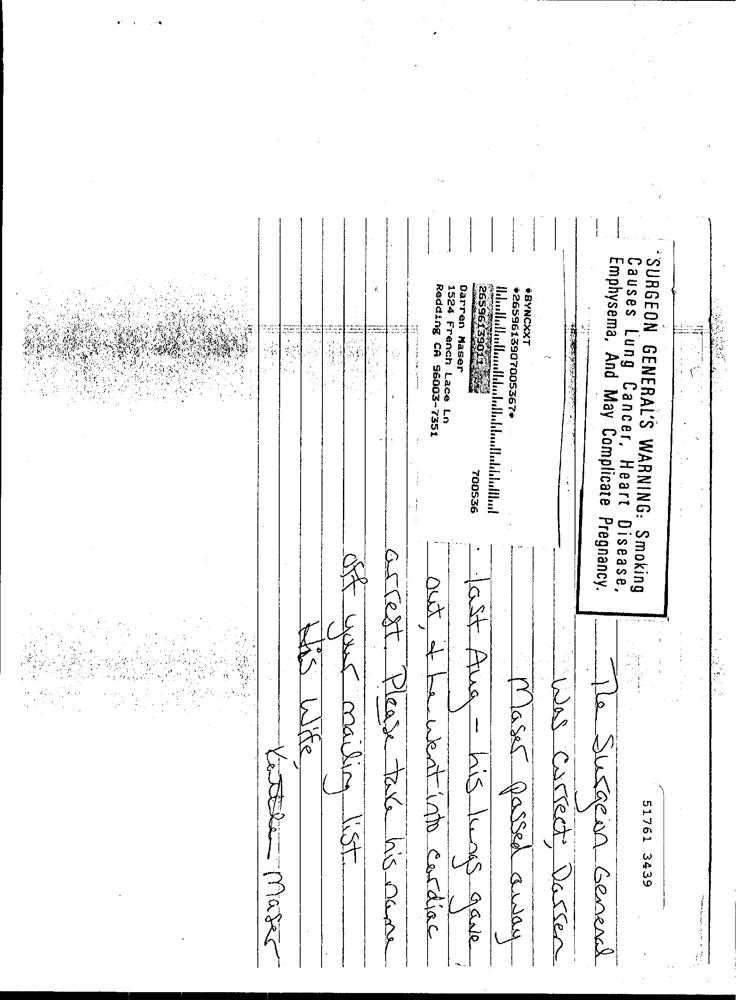 "SURGEON GENERAL'S WARNING: Smoking
Causes Lung Cancer, Heart Disease,
Emphysema, And May Complicate Pregnancy.
51761 3439
*BYNCXXT
*2659613907005367*
26596139011
700536
Darren Maser
1524 French Lace Ln
Redding CA 96003-7351
The Surgeon General
was correct, Darren
Maser passed away
last Aug - his lungs gave
out, & he went into cardiac
arrest. Please take his name
off your mailing list.
His Wife,
Kathleen Maser